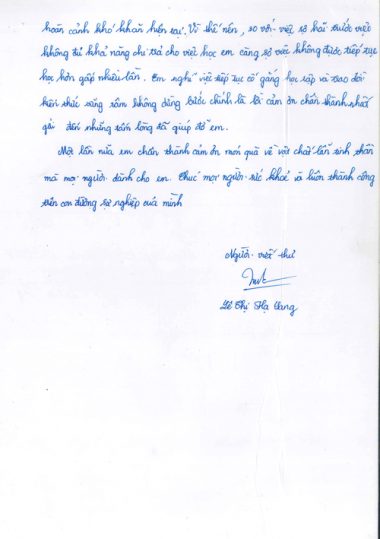 hoàn cảnh khó khăn hiện tại. Vì thế nên, so với việc sợ hãi trước việc
không đủ khả năng chi trả cho việc học em càng sợ việc không được tiếp tục
học hơn gấp nhiều lần. Em nghĩ việc tiếp tục cố gắng học tập và trao dồi
kiến thức vững tâm không dừng bước chính là lời cảm ơn chân thành nhất
gửi đến những tấm lòng đã giúp đỡ em.
Một lần nữa em chân thành cảm ơn món quà về vật chất lẫn tinh thần
mà mọi người dành cho em. Chúc mọi người sức khoẻ và luôn thành công
trên con đường sự nghiệp của mình
Người viết thư
Lê Thị Hạ Vang